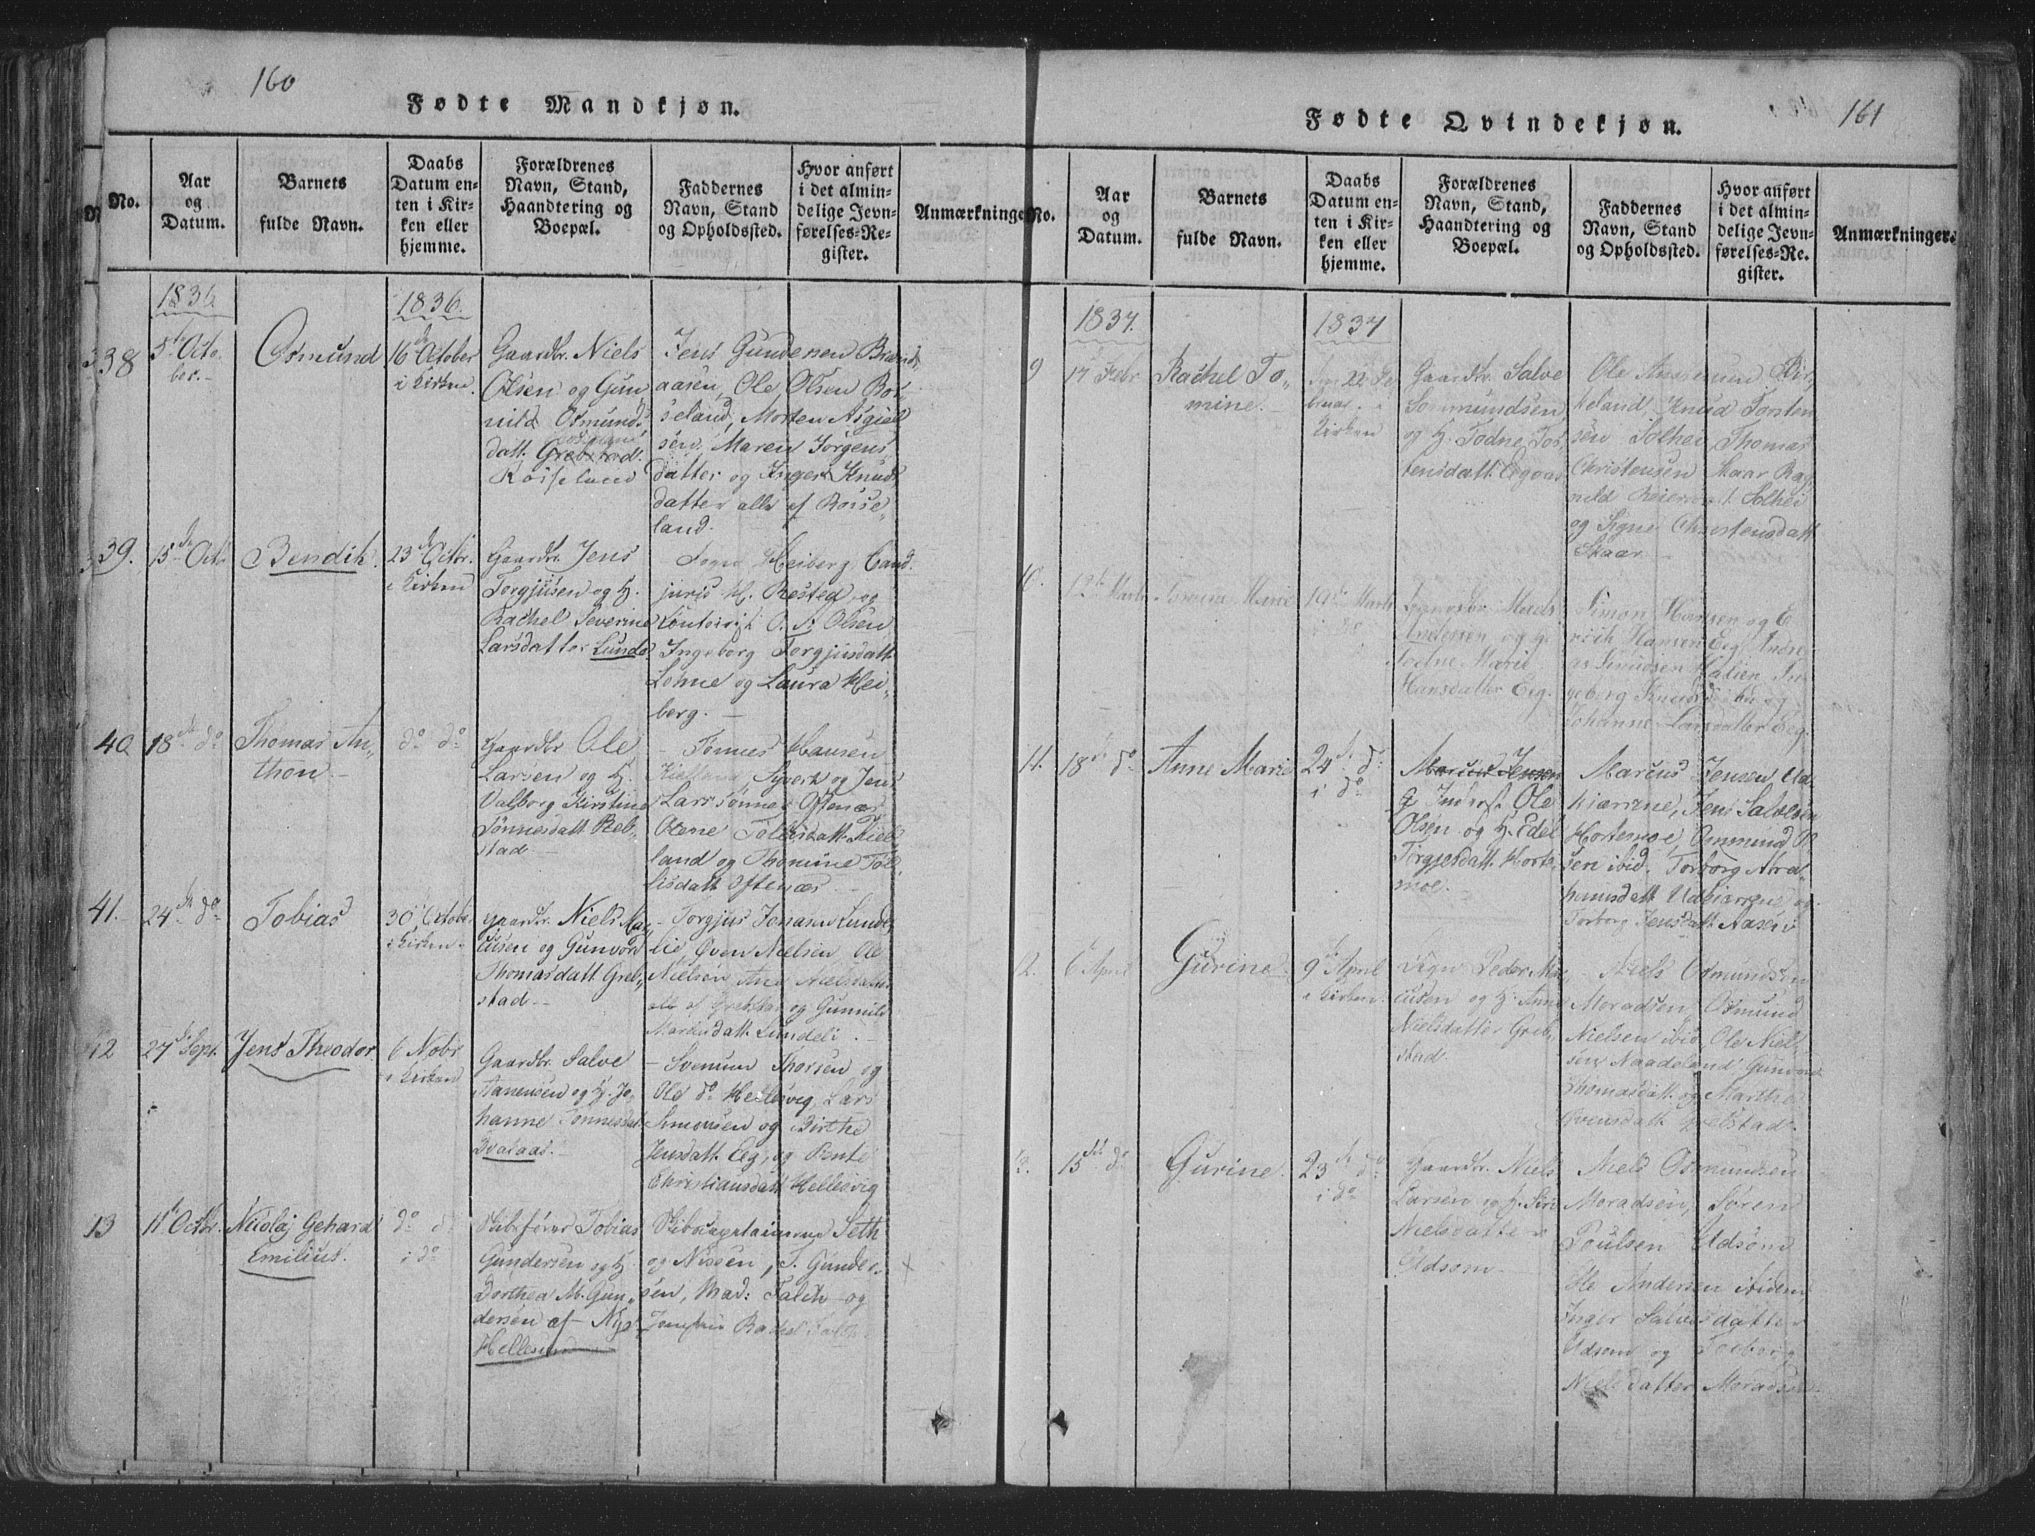 160
Fødte Mandkjøn.
No.
Aar
og
Datum.
Barnets
fulde Navn.
Daabs
Datum en-
ten i Kir-
ken eller
hjemme.
Forældrenes
Navn, Stand,
Haandtering og
Boepæl.
Faddernes
Navn, Stand
og Opholdssted.
Hvor anført
i det almin-
delige Jevn-
førelses-Re-
gister.
Anmærkninger
1836
1836.
38
5te Octo-
ber.
Osmund
16de October
i Kirken
Gaardbr. Niels
Olsen og Gun
nild Osmunds
datt. Grebstad.
Røiseland
Jens Gundersen
aasen, Ole Olsen Røi
seland, Morten Asgiel
sen, Maren Jørgens
datter og Inger Knuds
datter alle af Røise-
land.
39.
15de Octr
Bendik.
23de Octbr.
i Kirken
Gaardbr. Jens
Torgjusen og H.
Rachel Severine
Larsdatter Lunde
Heiberg Cand.
juris H. Rested og
O. Olsen
Ingeborg Torgjusdatt
Lohne og Laura Hei-
berg.
40
18de do
Thomas An-
thon.
do do
Gaardbr Ole
Larsen og H.
Valborg Kirstine
Tønnesdatt Reb-
stad
Tønnes Hansen
Kielland, Syvert og Jens
Larssønner Oftenæs
Olene Tollisdatt. Kiel-
land og Thomine Tol-
lisdatt Oftenæs
41.
24de do
Tobias
30 Octobr
i Kirken
Gaardbr. Niels Mar-
cusen og Gunvord
Thomasdatt Greb-
stad
Torgjus Jonasen Lunde-
lie Oven Nielsen Ole
Nielsen Ane Nielsdatter
alle af Grebstad og Gunnild
Marcusdatt. Lundeli.
42
27de Sept.
Jens Theodor
6 Nobr
i Kirken
Gaardbr. Salve
Tanensen og H. Jo-
hanne Tønnesdat.
Braaaas.
Svenum Thorsen og
Ole do Hellesvig, Lars
Simonsen og Birthe
Jensdatt. Eeg, og Bente
Christiansdatt Hellesvig
43
11te Octbr.
Nicolaj Gehard
Emilius.
do do
i do
Skibsfører Tobias
Gundersen og H.
Dorthea M. Gun-
dersen af Nye
Hellesund
Skibscaptainerne Seth
og Nissen, T. Gunder-
sen, Mad: Falch og
Jomfru Rachel Falch
161
Fødte Qvindekjøn.
No.
Aar
og
Datum.
Barnets
fulde Navn.
Daabs
Datum en-
ten i Kir-
ken eller
hjemme.
Forældrenes
Navn, Stand,
Haandtering og
Boepæl.
Faddernes
Navn, Stand
og Opholdssted.
Hvor anført
i det almin-
delige Jevn-
førelses-Re-
gister.
Anmærkninger.
1837.
1837
9
17 Febr
Rachel To-
mine.
Kirken
Gaardbr Salve
Sommundsen
og H. Todne Tos-
tensdatt. Eigvaa
Ole
keland, Knud Torsten
sen Solhei, Thomas
Christensen Skaar Rag
nild Reiersdt. Solhei
og Signe Christensdatt
Skaar
10.
12te Marts
Marie
19de Marts
i do
Mads
Andersen og H.
Todne Marie
Hansdatter Eeg.
Simon Hansen og E-
rich Hansen Eeg, Andre-
as Knudsen Valien In
geborg Knudsdt ibd og
Johanne Larsdatter Eeg.
11.
18de do
Anne Marie
24de do
i do
Marcus Jensen
Inderst. Ole
Olsen og H. Edel
Torgjersdatt. Horte-
moe.
Marcus Jensen Ud-
kiærrene, Jens Salvesen
Hortemoe, Ommund Ol
sen ibid. Torborg Abra-
hamsdatt Udkiærrene og
Torborg Jensdatt. Aasen
12.
6 April
Gurine
9de April
i Kirken.
Peder Mar
cusen og H. Anne
Nielsdatter Greb-
stad.
Niels Osmundsen
Moradsen, Osmund
Nielsen ibid. Ole Niel-
sen Naadeland Gunvor
Thomasdatt. og Marthe
Ovensdatt Grebstad
13.
15de do
Gurine.
23de do
i do
Gaardbr. Niels
Larsen og H. Siri
Nielsdatter
Udsom
Niels Osmundsen
Moradsen, Søren
Poulsen Udsom
Ole Andersen ibidem,
Inger Salvesdatter
Udsom og Torborg
Nielsdatter Moradsen